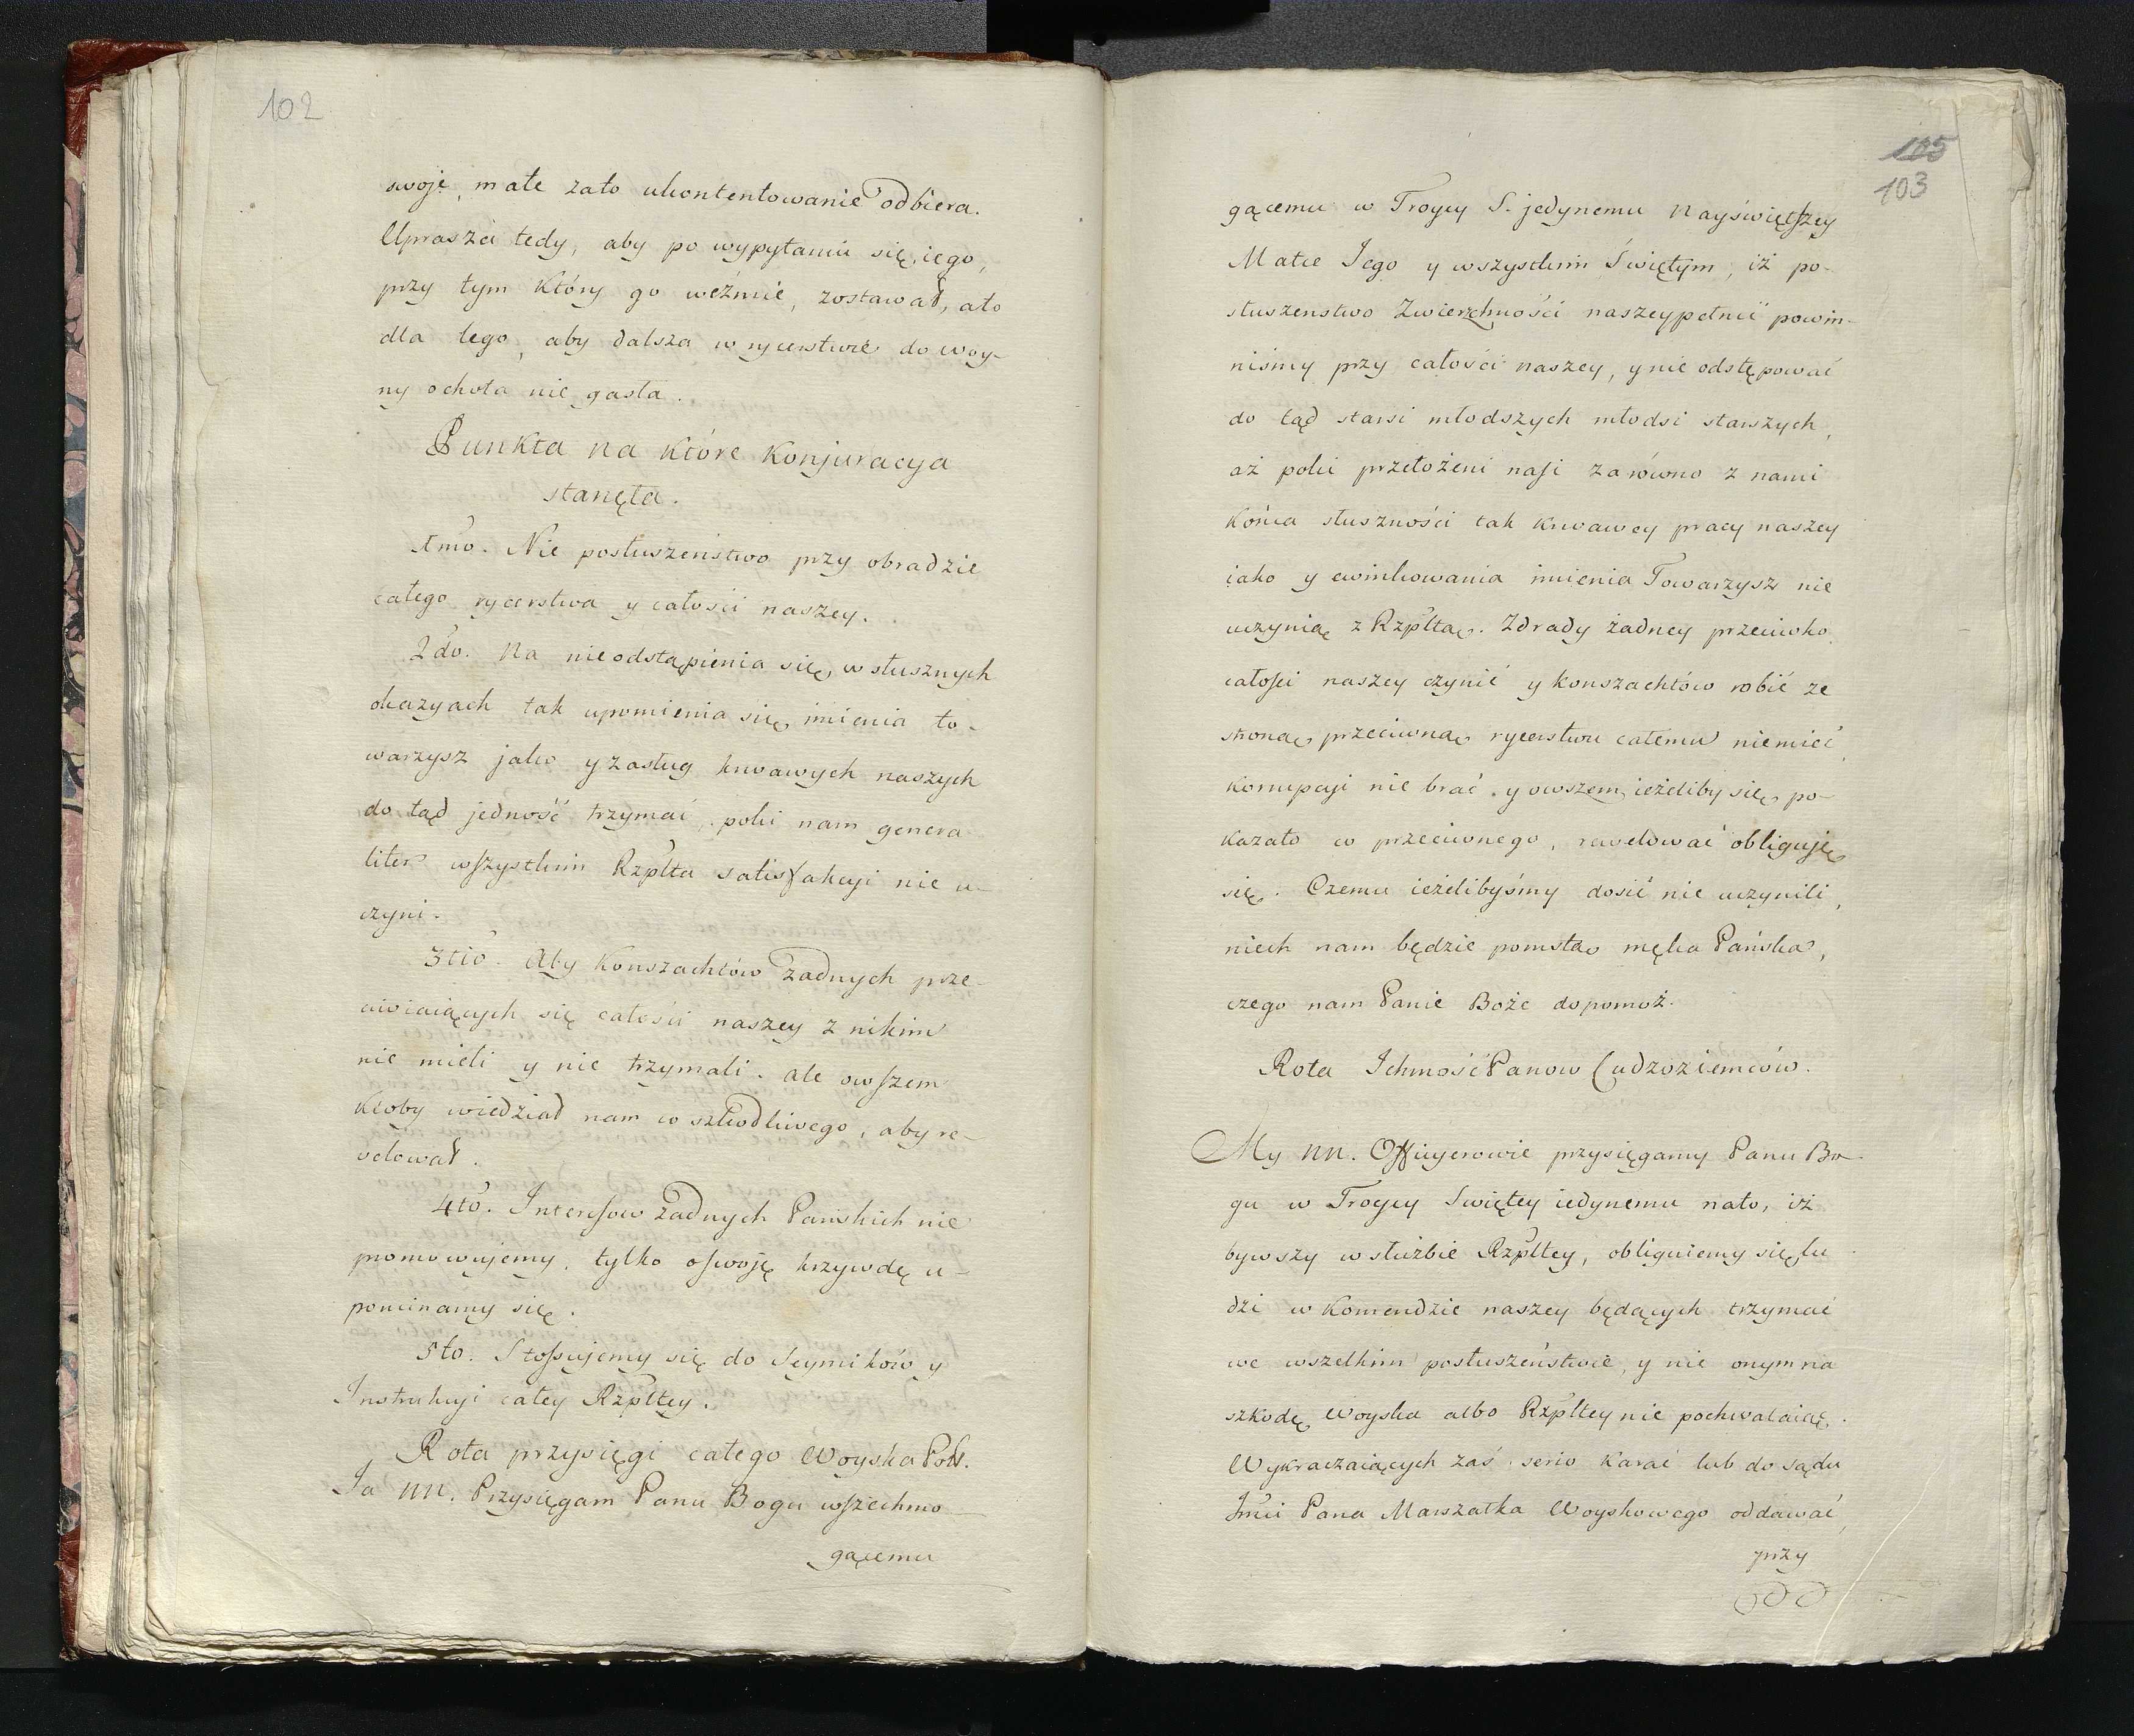 102
swoje, małe zato ukontentowanie odbiera.
Uprasza tedy, aby po wypytaniu się iego,
przy tym Który go weźmie, zostawał, ato
dla tego, aby dalsza w rycerstwie do woy-
ny ochota nie gasła.
Punkta na które Konjuracya
stanęła.
1mo. Nie posłuszeństwo przy obradzie
całego rycerstwa y całości naszey.
2do. Na nieodstąpienia się, w słusznych
okazyach tak upomienia się imienia to-
warzysz jako y zasług krwawych naszych
do tąd jedność trzymać, poki nam genera
liter wszystkim Rzplta satisfakcyi nie u-
czyni.
3tio. Aby Konszachtów żadnych prze-
ciwiaiących się całości naszey z nikim
nie mieli y nie trzymali. ale owszem
Ktoby wiedział nam co szkodliwego, aby re-
velował.
4to. Interesow żadnych Pańskich nie
promowujemy, tylko o swoję krzywdę u-
pominamy się.
5to. Stosujemy się do Seymików y
Instrukcyi całey Rzpltey.
Rota przysięgi całego Woyska Pols.
Ja NN. Przysięgam Panu Bogu wszechmo-
gącemu
105
103
gącemu w Troycy S. jedynemu Nayświętszey
Matce Jego y wszystkim Świętym, iż po-
słuszenstwo Zwierzchności naszey pełnić powin-
niśmy przy całości naszey, y nie odstępować
do tąd starsi młodszych młodsi starszych,
aż poki przełożeni nasi zarówno z nami
Końca słuszności tak krwawey pracy naszey
iako y ewinkowania imienia Towarzysz nie
uczynią z Rzpltą. Zdrady żadney przeciwko
całości naszey czynić y konszachtów robić ze
stroną przeciwną rycerstwu całemu niemieć,
korrupcyi nie brać. y owszem ieżeliby się po-
kazało co przeciwnego, rewelować obliguję
się. Czemu ieżelibyśmy dosić nie uczynili,
niech nam będzie pomstą męka Pańska,
czego nam Panie Boże dopomoż.
Rota Ichmość Panow Cudzoziemców.
My NN. Officyerowie przysięgamy Panu Bo-
gu w Troycy Swiętey iedynemu nato, iż
bywszy w służbie Rzpltey, obliguiemy się lu-
dzi w Komendzie naszey będących trzymać
we wszelkim posłuszeństwie, y nic onym na
szkodę Woyska albo Rzpltey nie pochwalaiąc.
Wykraczaiących zaś serio Karać lub do sądu
Jmci Pana Marszałka Woyskowego oddawać,
przy